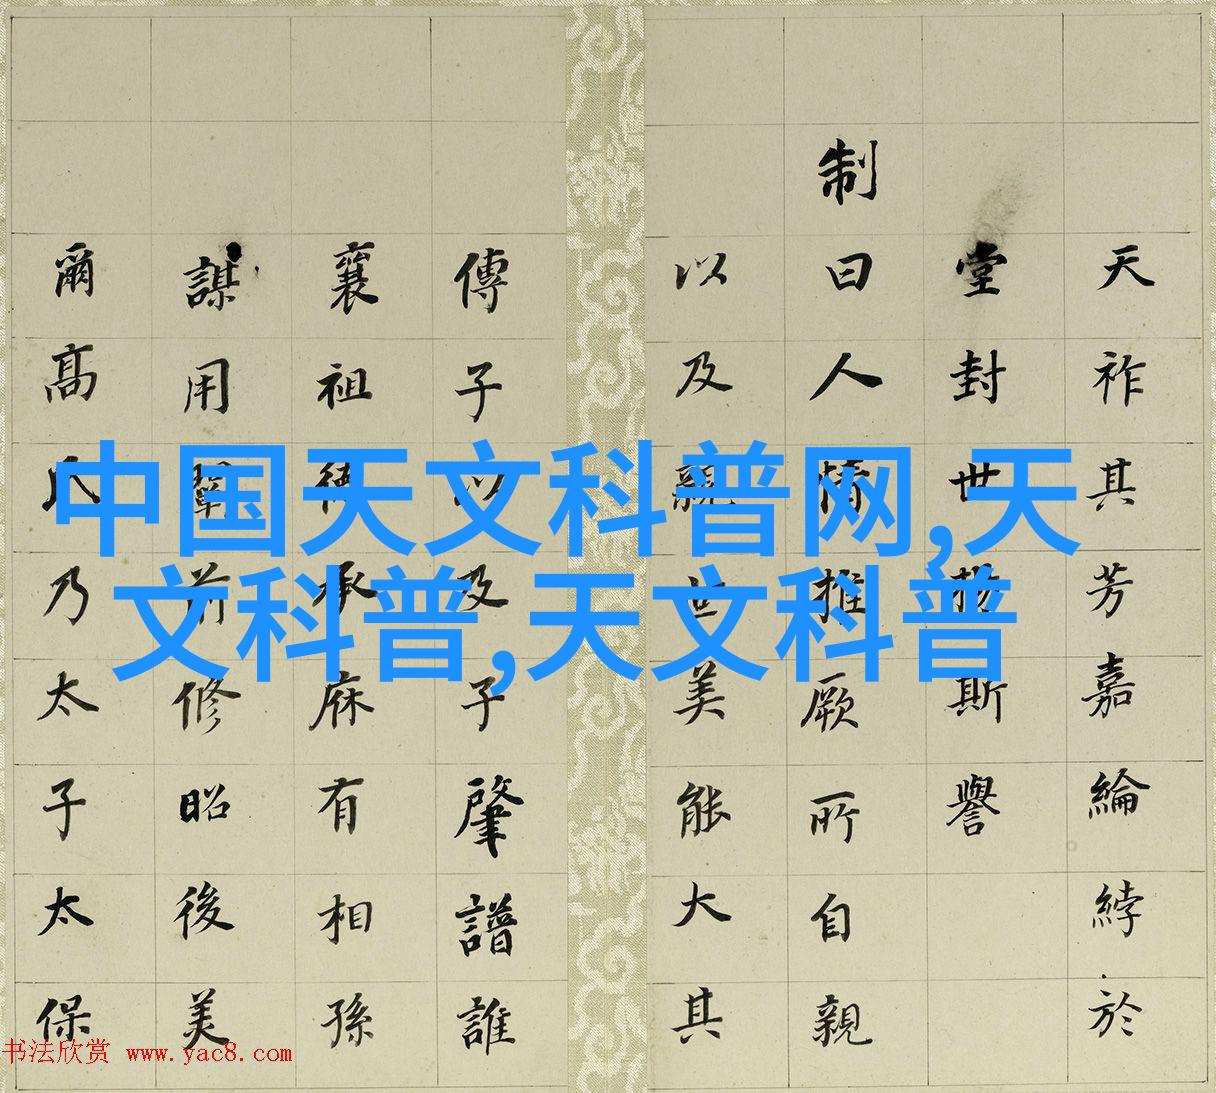 中国天文科普网,天
文科普,天文科普
天祚其芳嘉綸綍於
堂封世揚斯譽
制曰人情推厥所自親
以及親世美能大其
傳子以及子肇譜誰
襄祖德承庥有相孫
謀用前修昭後美
爾高氏乃太子太保
书法欣赏 www.yac8.com